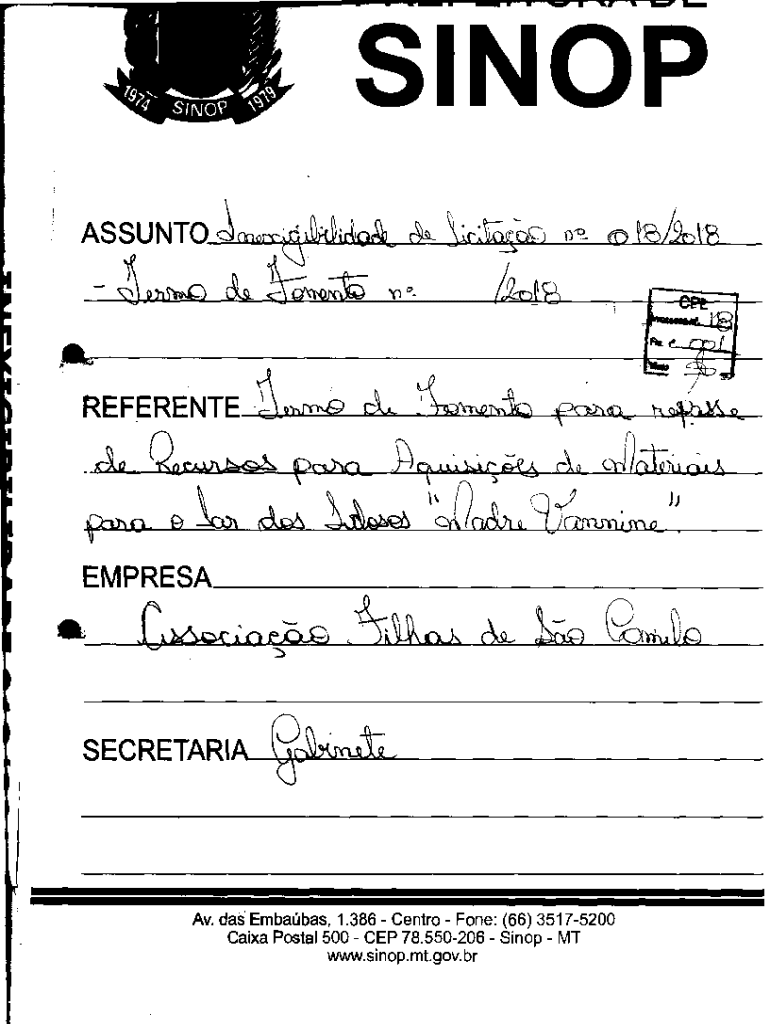 PREFEITURA DE
SINOP
1974 SINOP 1979
ASSUNTO Inexigibilidade de Licitação nº 018/2018
- Termo de Fomento nº /2018
CPL
18
001
REFERENTE Termo de Fomento para repasse
de Recursos para Aquisições de Materiais
para o Lar dos Idosos "Madre Vannine".
EMPRESA
Associação Filhas de São Camilo
SECRETARIA Gabinete
Av. das Embaúbas, 1.386 - Centro - Fone: (66) 3517-5200
Caixa Postal 500 - CEP 78.550-206 - Sinop - MT
www.sinop.mt.gov.br